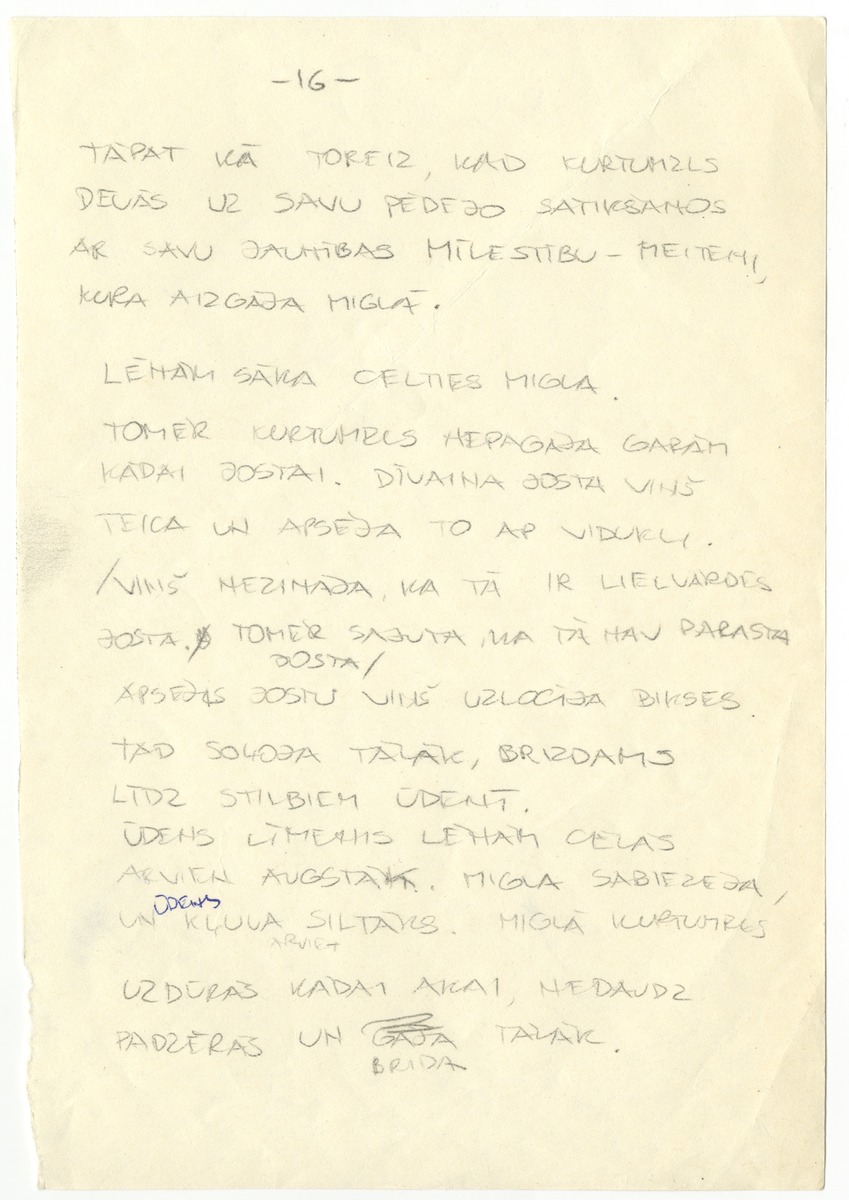 -16-
TĀPAT KĀ TOREIZ, KAD KURTUMZLS
DEVĀS UZ SAVU PĒDĒJO SATIKŠANOS
AR SAVU JAUNĪBAS MĪLESTĪBU - MEITENI,
KURA AIZGĀJA MIGLĀ.
LĒNĀM SĀKA CELTIES MIGLA.
TOMĒR KURTUMZLS NEPAGĀJA GARĀM
KĀDAI JOSTAI. DĪVAINA JOSTA VIŅŠ
TEICA UN APSĒJA TO AP VIDUKLI.
/VIŅŠ NEZINĀJA, KA TĀ IR LIELVĀRDES
JOSTA. TOMĒR SAJUTA, KA TĀ NAV PARASTA
JOSTA/
APSĒJIS JOSTU VIŅŠ UZLOCĪJA BIKSES
TAD SOĻOJA TĀLĀK, BRIZDAMS
LĪDZ STILBIEM ŪDENĪ.
ŪDENS LĪMENIS LĒNĀM CĒLĀS
ARVIEN AUGSTĀK. MIGLA SABIEZĒJA,
UN ŪDENS KĻUVA SILTĀKS. MIGLĀ KURTUMZLS
ARVIEN
UZDŪRĀS KĀDAI AKAI, NEDAUDZ
PADZĒRĀS UN GĀJA TĀLĀK.
BRIDA